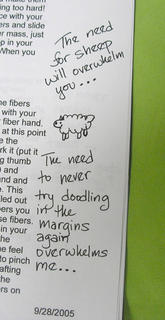 ing too hard!
ce with your
ers and slide
r mass, just
p in your
When you
The need
for sheep
will overwhelm
you...
he fibers
with your
fiber hand.
at this point
e the
rk it (put it
ng thumb
) and
nd and
e. This
led out
ers you
se fibers.
in your
the
e feel
to pinch
afting
the
rs on
The need
to never
try doodling
in the
margins
again
overwhelms
me...
9/28/2005